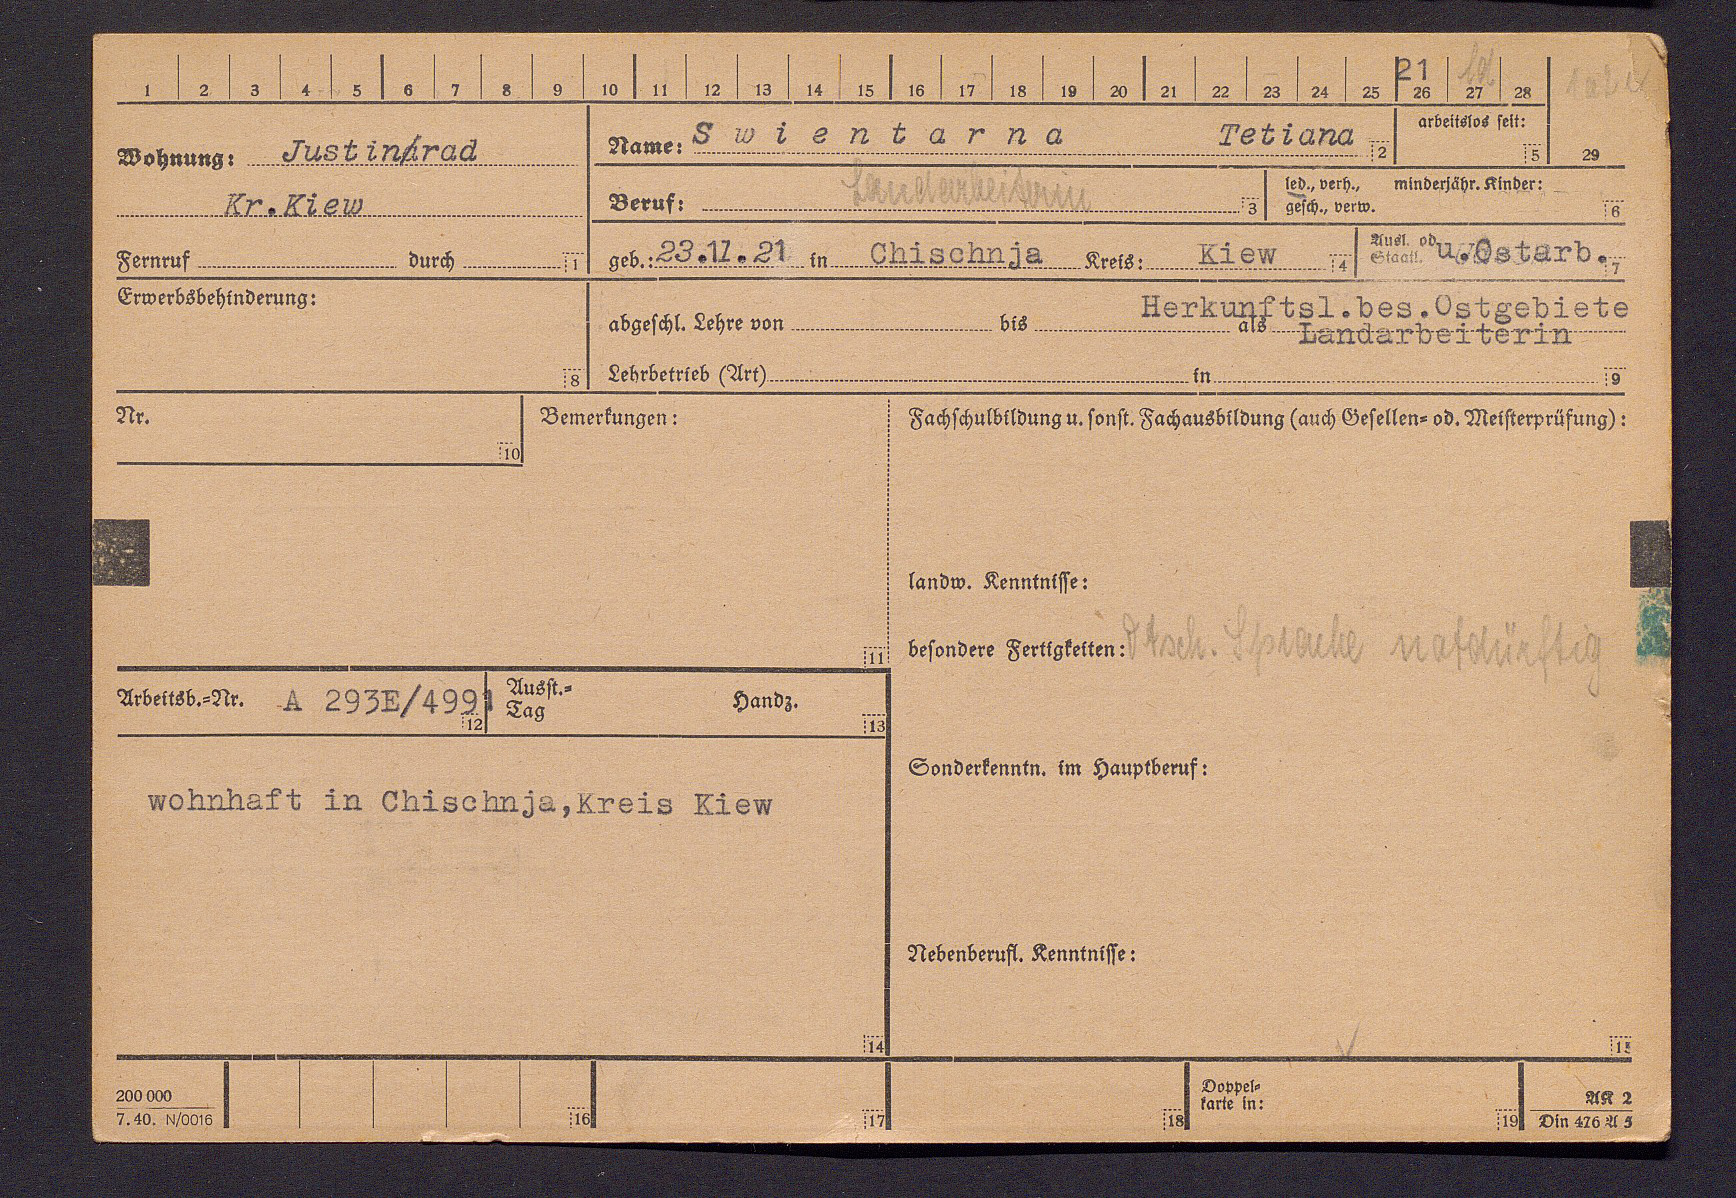 1 2 3 4 5 6 7 8 9 10 11 12 13 14 15 16 17 18 19 20 21 22 23 24 25 26 27 28
21
Wohnung: Justingrad
Kr.Kiew
Fernruf durch 1
Name: Swientarna Tetiana 2
arbeitslos seit: 5
29
Beruf: Landarbeiterin 3
led., verh., gesch., verw. minderjähr. Kinder: 6
geb.: 23.11.21 in Chischnja Kreis: Kiew 4
Ausl. od. Staatl. u.Ostarb. 7
Erwerbsbehinderung: 8
Herkunftsl.bes.Ostgebiete
abgeschl. Lehre von bis als Landarbeiterin
Lehrbetrieb (Art) in 9
Nr. 10
Bemerkungen: 11
Fachschulbildung u. sonst. Fachausbildung (auch Gesellen- od. Meisterprüfung):
landw. Kenntnisse:
besondere Fertigkeiten: Dtsch. Sprache notdürftig
Arbeitsb.-Nr. A 293E/4991 12
Ausst.-Tag Handz. 13
wohnhaft in Chischnja,Kreis Kiew
14
Sonderkenntn. im Hauptberuf:
Nebenberufl. Kenntnisse:
15
200 000
7.40. N/0016
16 17 18
Doppel-
karte in: 19
AK 2
Din 476 A 5